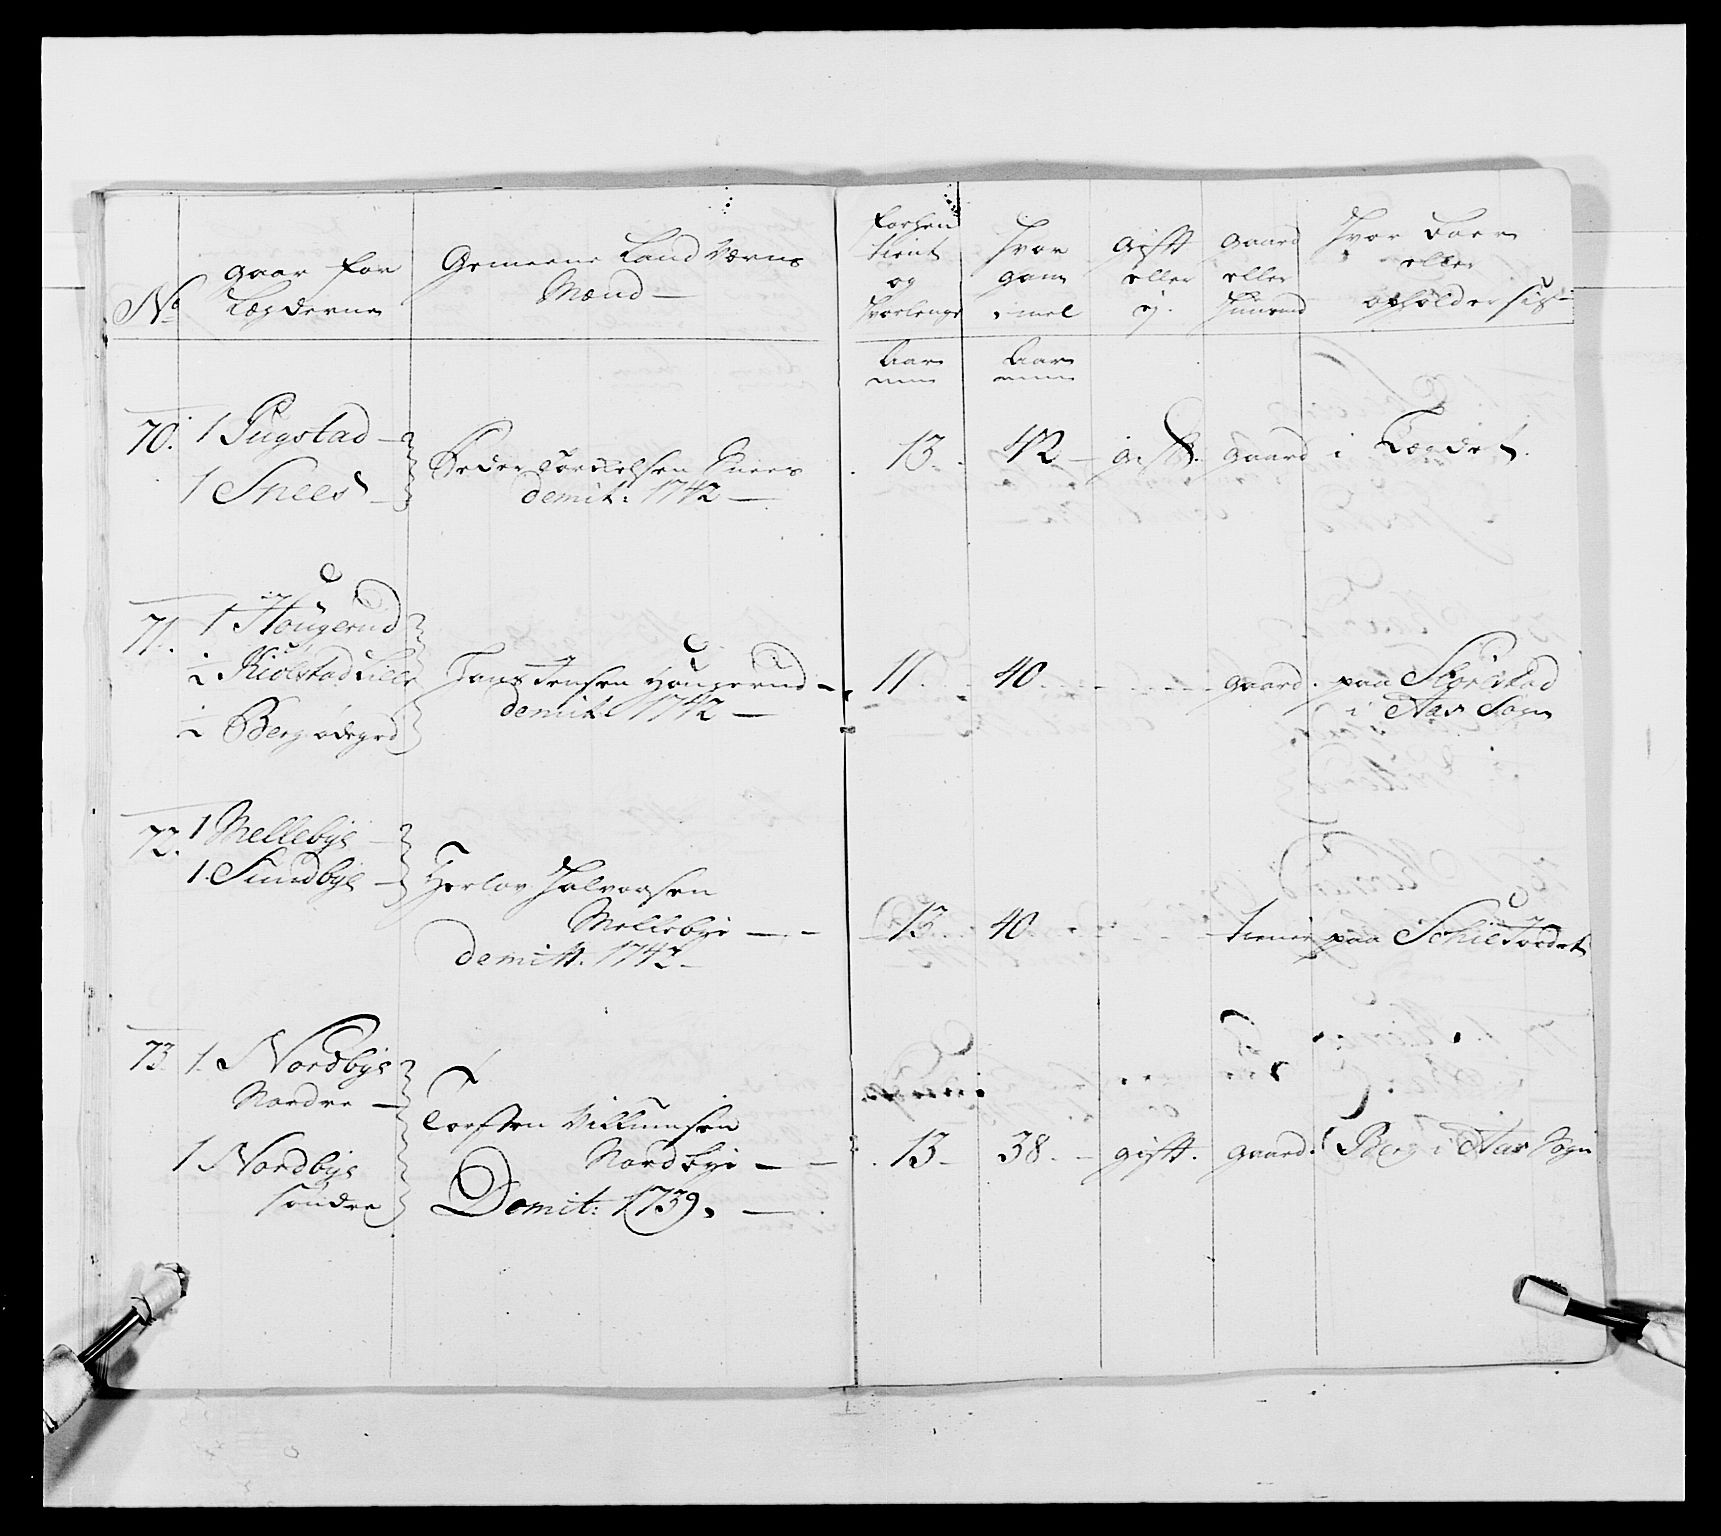 No
gaar for
Lægderne
Gemeene Land Værns
Mænd —
forhen
tient
og
hvorlenge
Hvor
gam
mel
gift
eller
ej.
gaard
eller
Huusmd
Hvor boer
eller
opholder sig
Aar
Aar
70. 1 Gugstad —
1 Snees —
Peder Torkelsen Snees
demit: 1742 —
13. 42 — gift. gaard i Lægdet.
71. 1 Hougerud
½ Kiolstad Lille
½ Berg ødegrd
Hans Jensen Hougerud —
demit 1742 —
11. 40. gaard. paa
i Aas Sogn
72. 1 Mellebye —
1. Sundbye —
Herlov Halvorsen
Mellebye —
demitt. 1742 —
13. 40 tiener paa
73. 1. Nordbye
Nordre —
1 Nordbye
søndre
Torsten Villumsen
Nordbye —
Demit: 1739. —
13 — 38. — gift. gaard. Berg i Aas Sogn